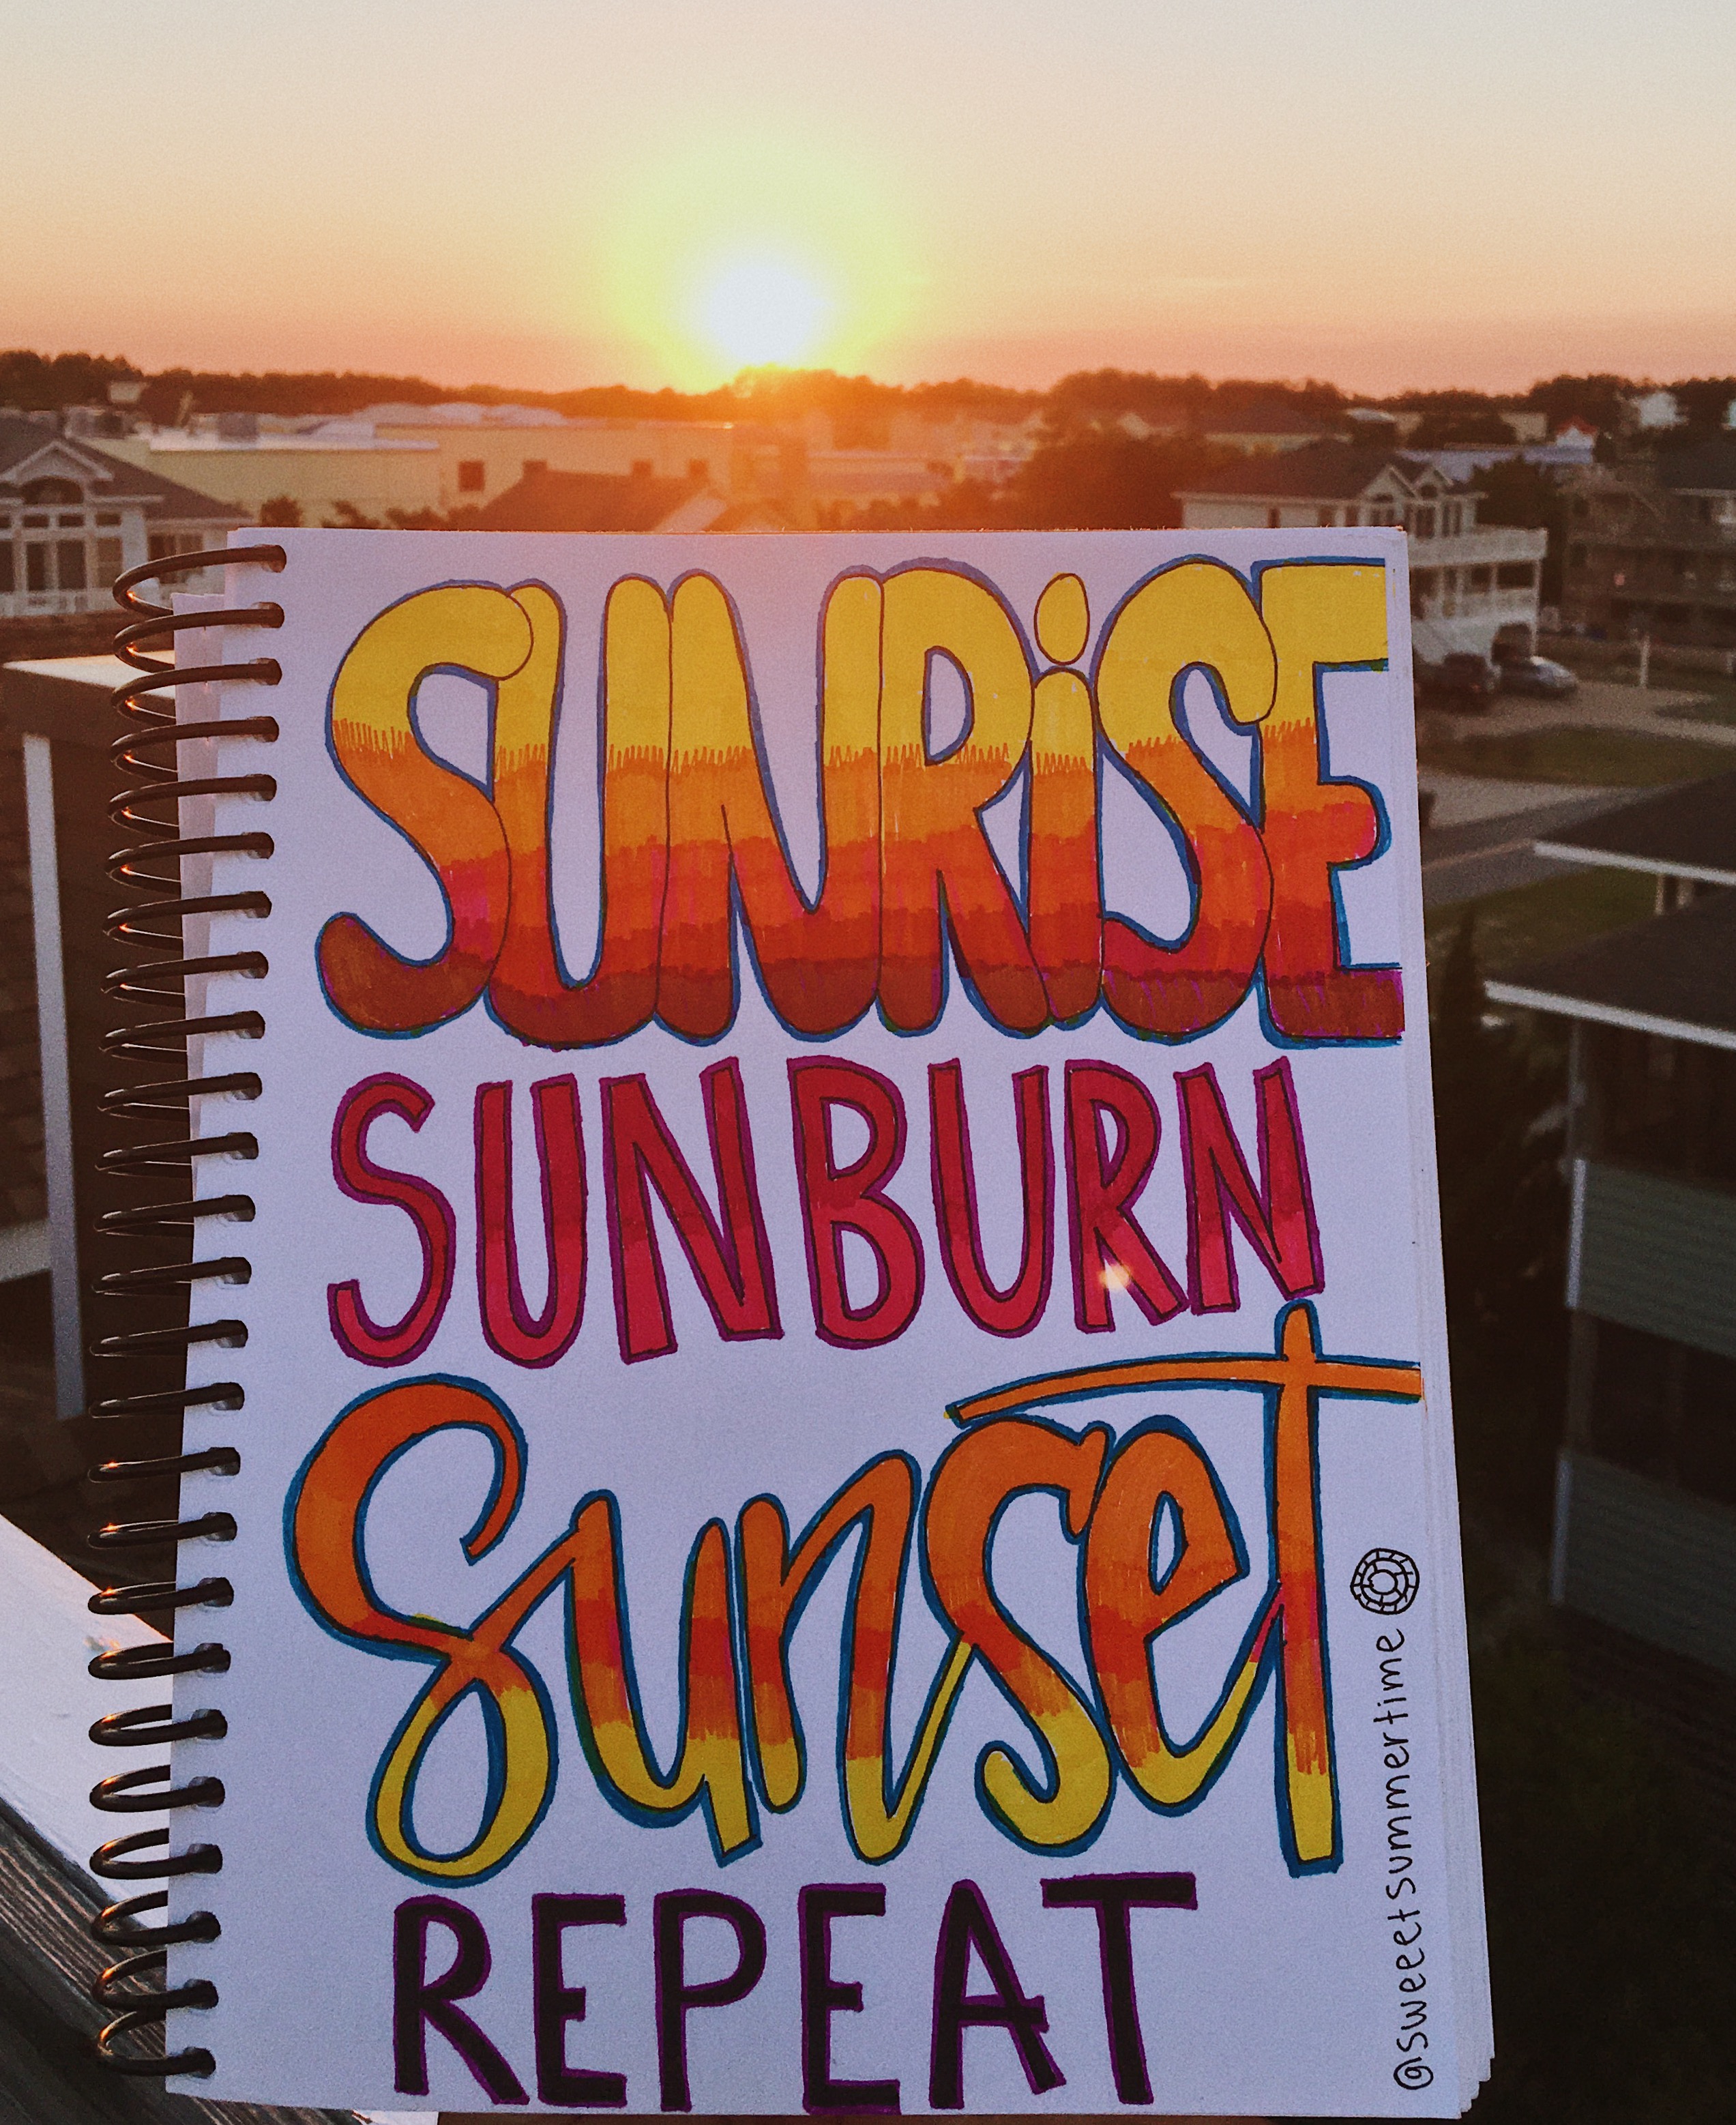 SUNRiSE
SUNBURN
Sunset
REPEAT
@sweetsummertime